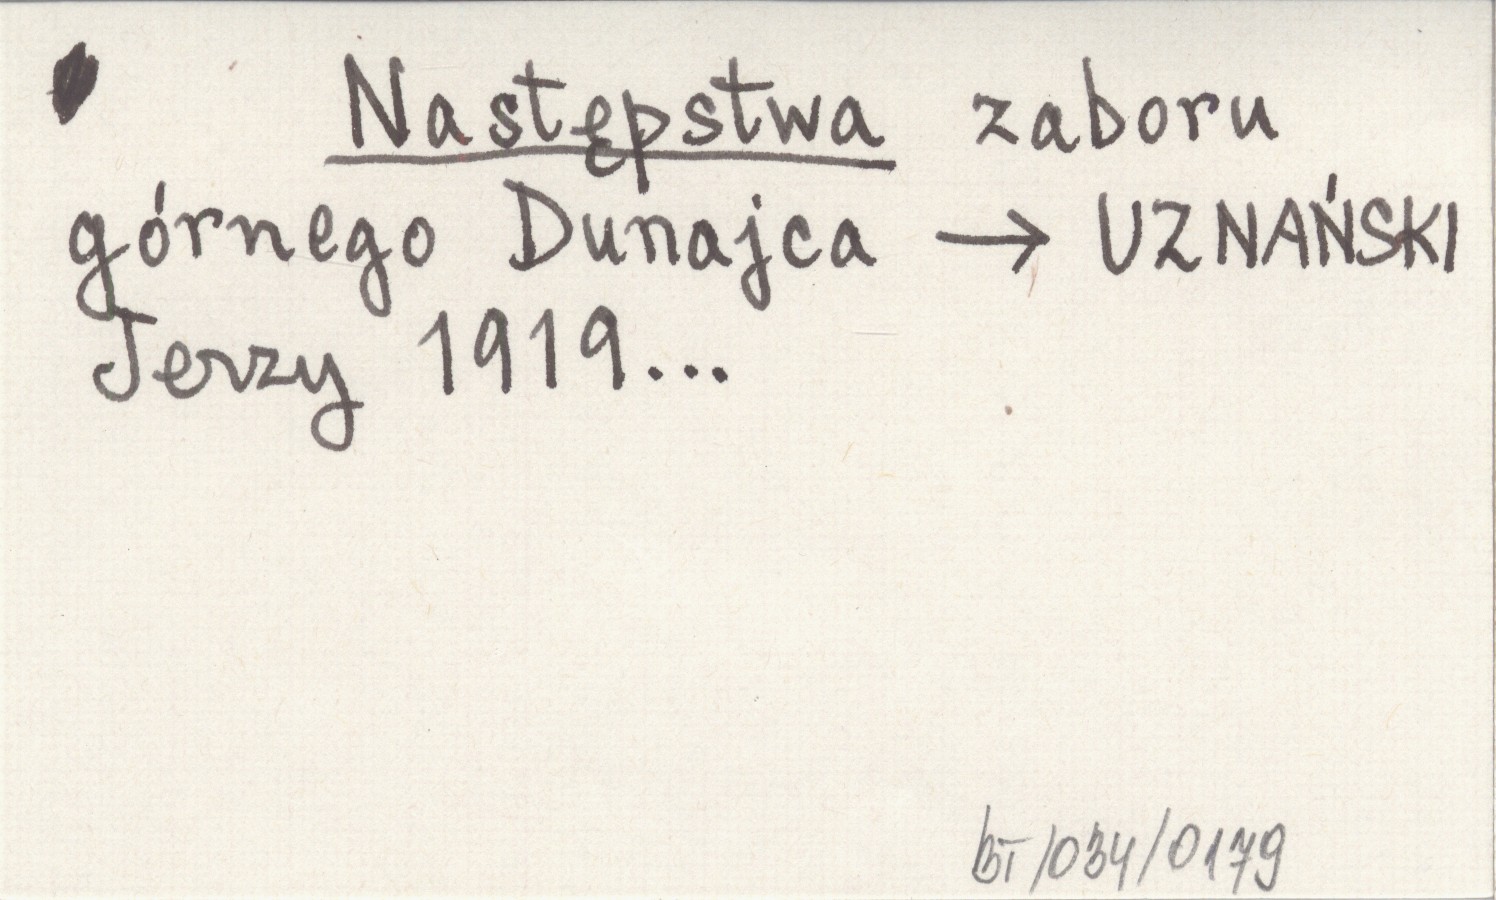 Następstwa zaboru
górnego Dunajca → UZNAŃSKI
Jerzy 1919...
BT/034/0179